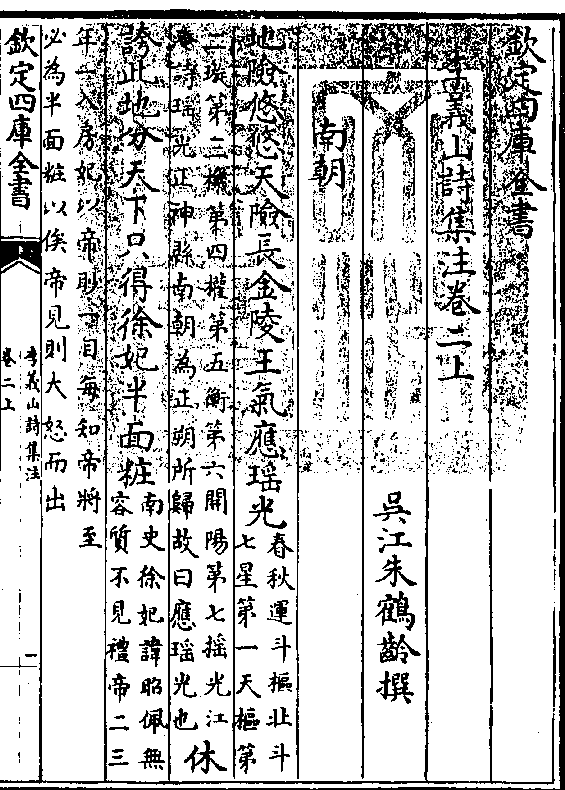 欽定四庫全書
李義山詩集注卷二上
吳江朱鶴齡撰
南朝
地險悠悠天險長金陵王氣應瑶光
春秋運斗樞北斗
七星第一天樞第
二璇第三機第四權第五衡第六開陽第七摇光江
淹詩瑶光正神縣南朝為正朔所歸故曰應瑶光也
休
誇此地分天下只得徐妃半面粧
南史徐妃諱昭佩無
容質不見禮帝二三
年一入房妃以帝眇一目每知帝將至
必為半面粧以俟帝見則大怒而出
欽定四庫全書
李義山詩集注
卷二上
一